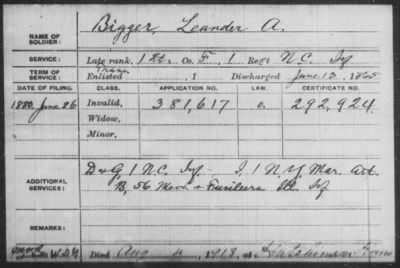 NAME OF SOLDIER: Bigger, Leander A.
SERVICE: Late rank, Co. F, 1 Regt N.C. Inf
TERM OF SERVICE: Enlisted , 1 Discharged June 13, 1865
DATE OF FILING. CLASS. APPLICATION NO. LAW. CERTIFICATE NO.
1880, June 26 Invalid, 381,617 292,924
Widow,
Minor,
ADDITIONAL SERVICES: D & G 1 N.C. Inf. I, 1 N.Y. Mar. Art.
B, 56 Mech. & Fusileers Ill. Inf
REMARKS:
Died Aug 4, 1918, at